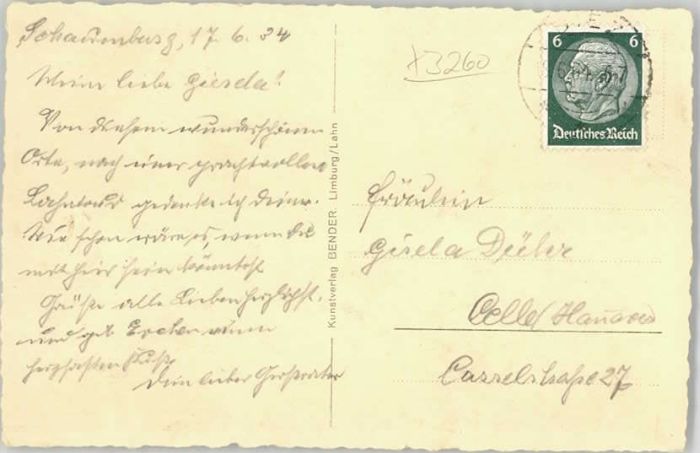 Schaumburg, 17. 6. 34
Meine liebe Giesela!
Von diesem wunderschönen
Orte, nach einer prachtvollen
gedenke ich Deiner.
Wie schon wäre es, wenn Du
mit hier sein könntest
Grüße alle Lieben herzlichst.
und
herzhaften Kuß
Dein lieber
Kunstverlag BENDER Limburg/Lahn
x3260
6 6
Deutsches Reich
Fräulein
Gisela
Celle/Hannover
Casselstraße 27